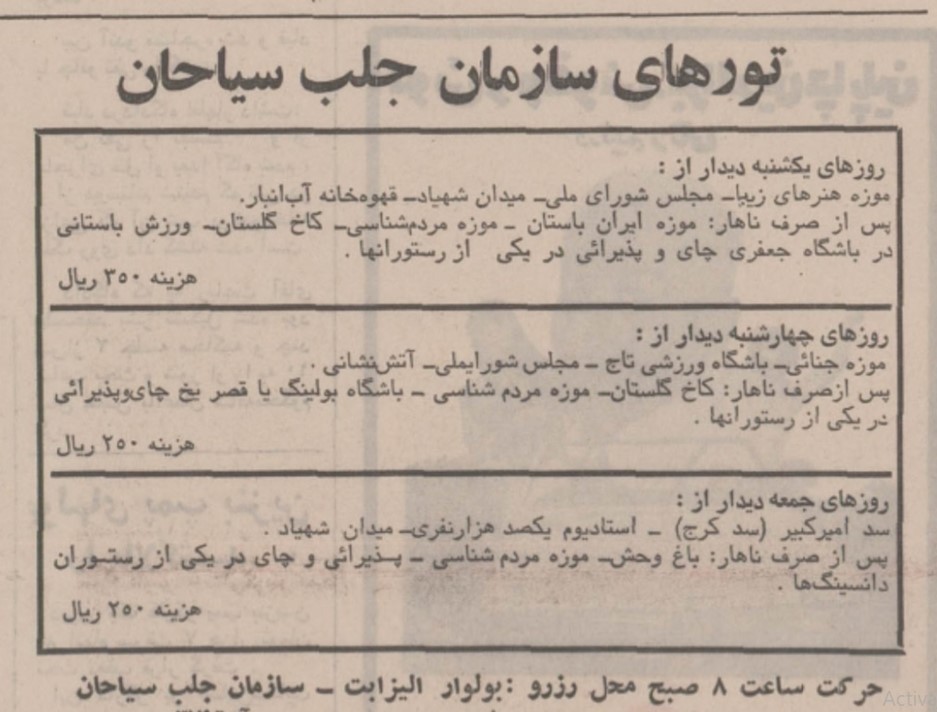 تورهای سازمان جلب سیاحان
روزهای یکشنبه دیدار از :
موزه هنرهای زیبا_ مجلس شورای ملی_ میدان شهیاد_ قهوه‌خانه آب‌انبار.
پس از صرف ناهار: موزه ایران باستان _ موزه مردم‌شناسی_ کاخ گلستان_ ورزش باستانی
در باشگاه جعفری چای و پذیرائی در یکی از رستورانها .
هزینه ۳۵۰ ریال
روزهای چهارشنبه دیدار از :
موزه جنائی_ باشگاه ورزشی تاج _ مجلس شورایملی_ آتش‌نشانی .
پس ازصرف ناهار: کاخ گلستان_ موزه مردم شناسی _ باشگاه بولینگ یا قصر یخ چای‌وپذیرائی
در یکی از رستورانها .
هزینه ۲۵۰ ریال
روزهای جمعه دیدار از :
سد امیرکبیر (سد کرج) _ استادیوم یکصد هزارنفری_ میدان شهیاد .
پس از صرف ناهار: باغ وحش_ موزه مردم شناسی _ پذیرائی و چای در یکی از رستوران
دانسینگ‌ها .
هزینه ۲۵۰ ریال
حرکت ساعت ۸ صبح محل رزرو :بولوار الیزابت _ سازمان جلب سیاحان